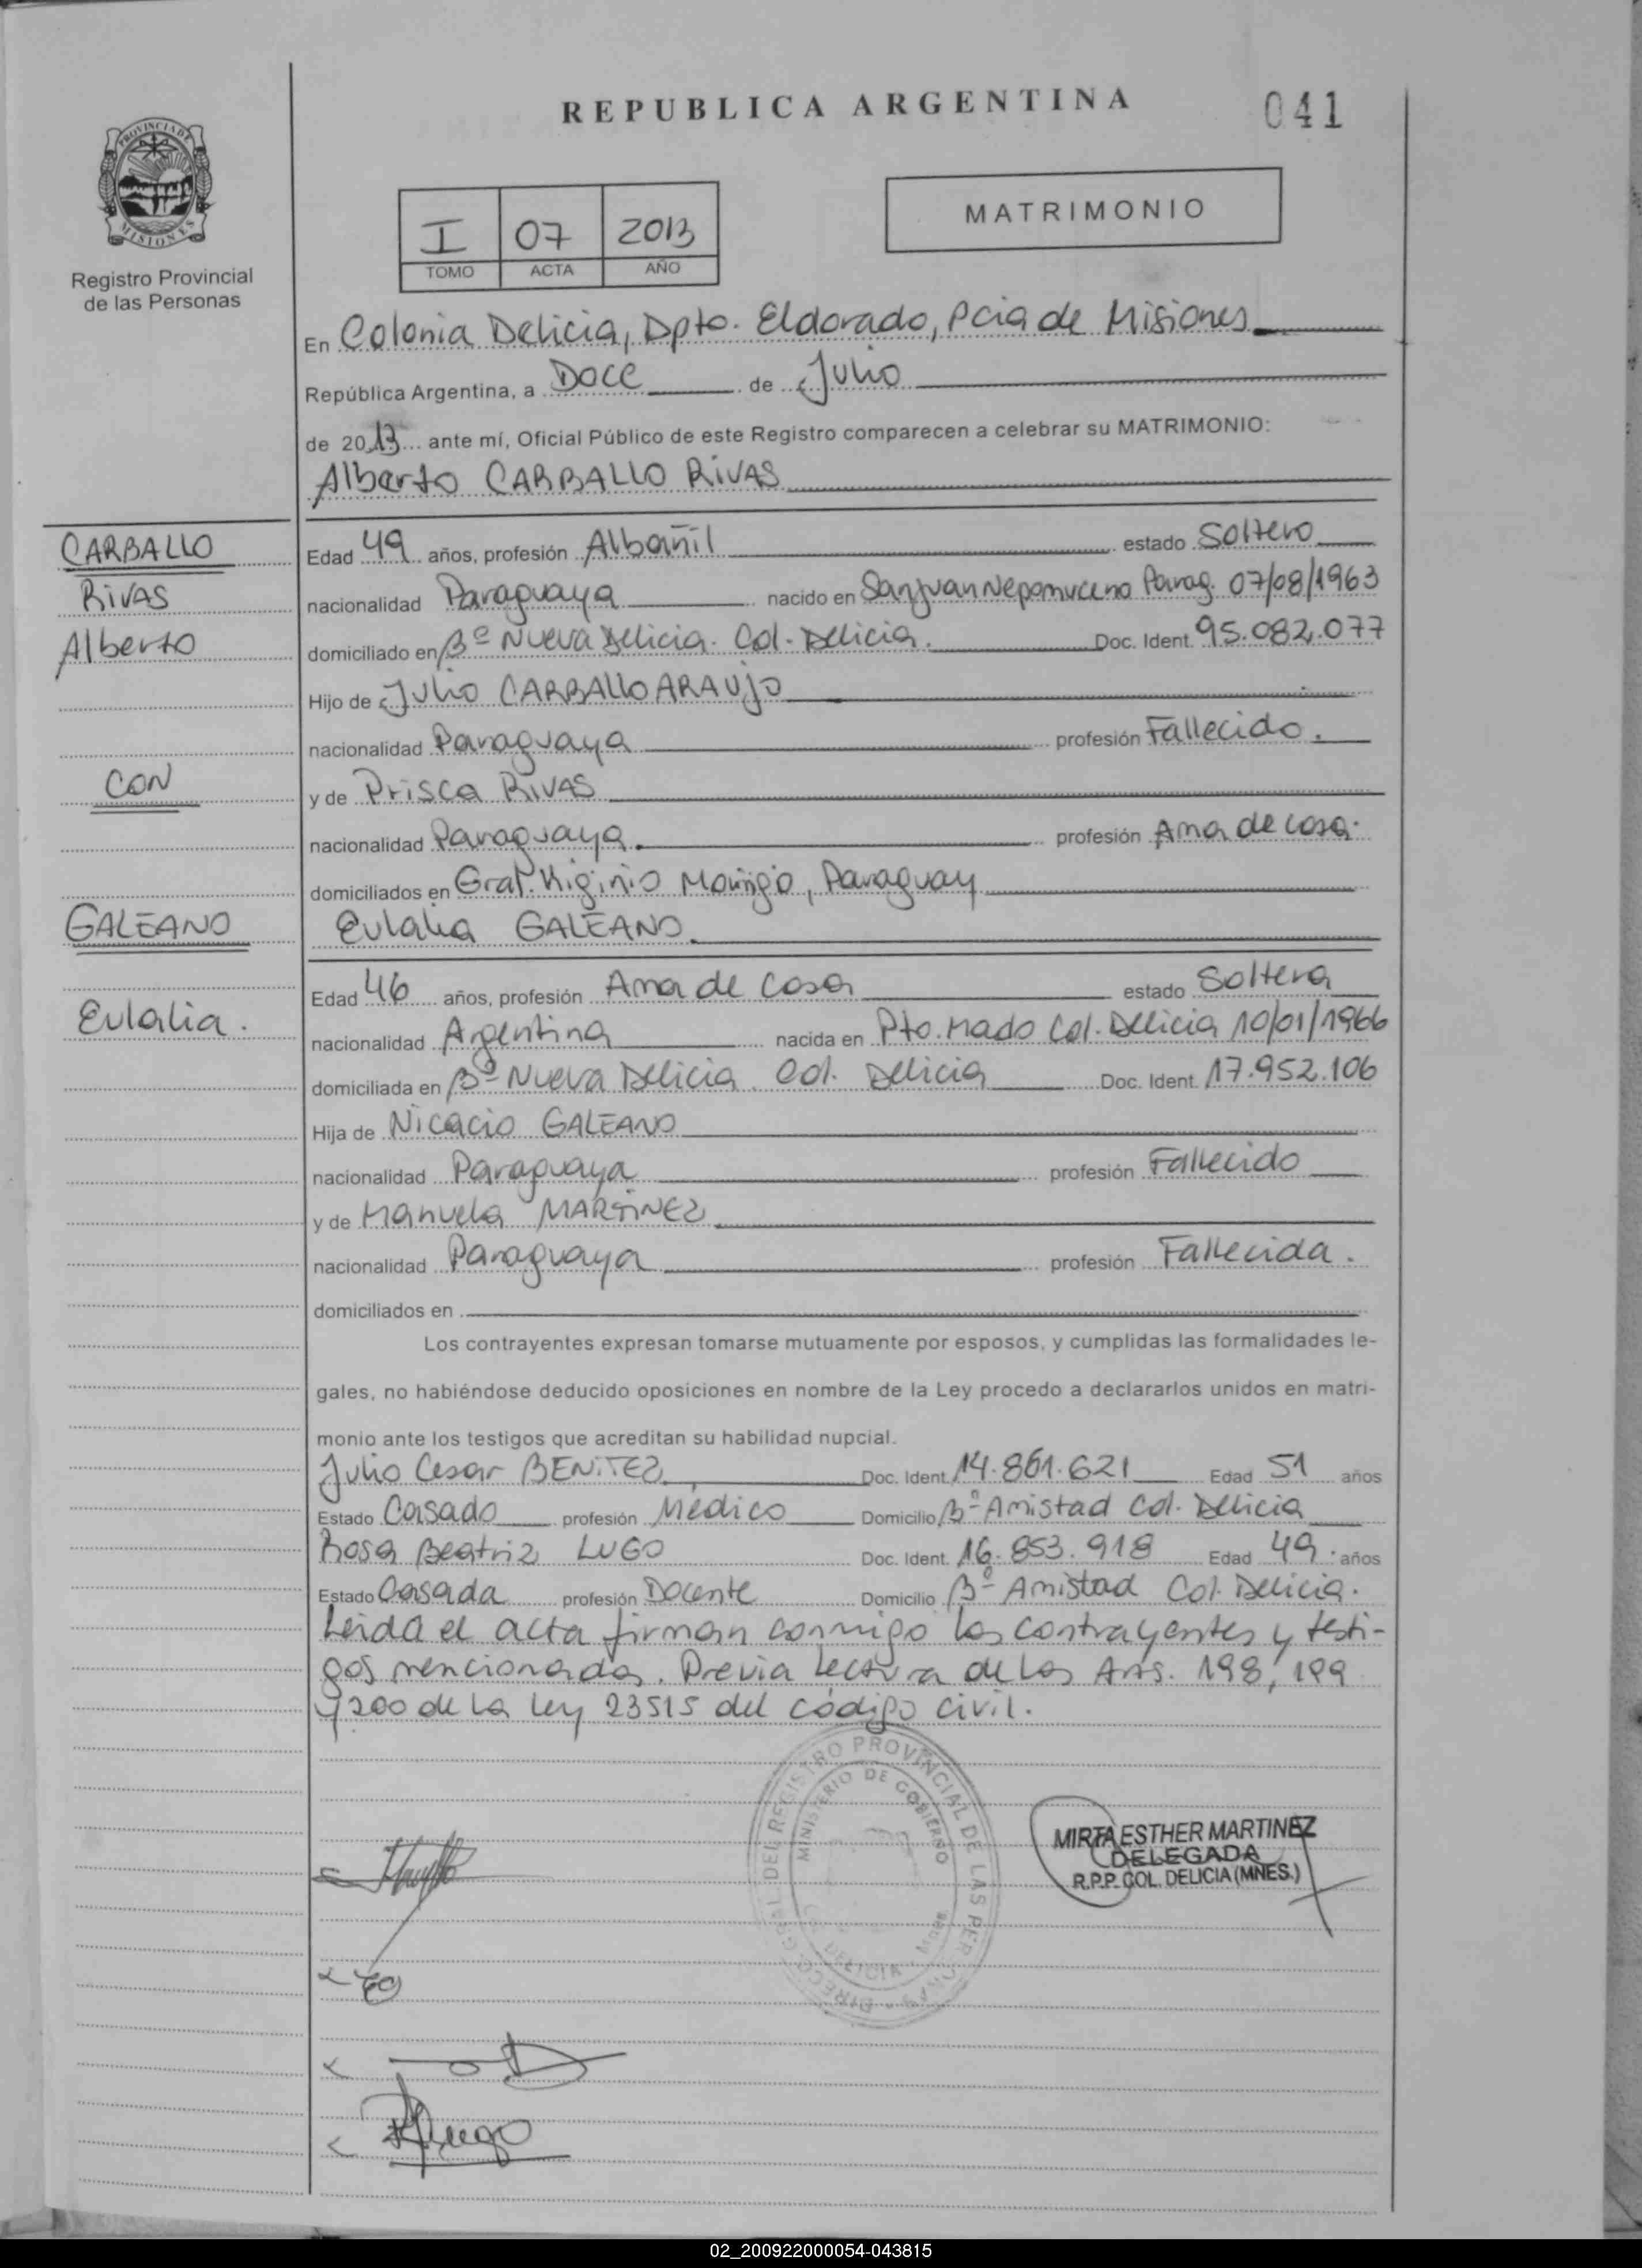 REPUBLICA ARGENTINA
041
PROVINCIA DE
MISIONES
Registro Provincial
de las Personas
I 07 2013
TOMO ACTA AÑO
MATRIMONIO
En Colonia Delicia, Dpto. Eldorado, Pcia de Misiones
República Argentina, a Doce de Julio
de 2013 ante mí, Oficial Público de este Registro comparecen a celebrar su MATRIMONIO:
Alberto CARBALLO RIVAS
CARBALLO
RIVAS
Alberto
CON
GALEANO
Eulalia.
Edad 49 años, profesión Albañil estado Soltero
nacionalidad Paraguaya nacido en San Juan Nepomuceno Parag. 07/08/1963
domiciliado en Bº Nueva Delicia. Col. Delicia. Doc. Ident. 95.082.077
Hijo de Julio CARBALLO ARAUJO
nacionalidad Paraguaya profesión Fallecido.
y de Prisca RIVAS
nacionalidad Paraguaya. profesión Ama de casa.
domiciliados en Gral. Higinio Morinigo, Paraguay
Eulalia GALEANO.
Edad 46 años, profesión Ama de casa estado Soltera
nacionalidad Argentina nacida en Pto. Mado Col. Delicia 10/01/1966
domiciliada en Bº Nueva Delicia. Col. Delicia Doc. Ident. 17.952.106
Hija de Nicacio GALEANO
nacionalidad Paraguaya profesión Fallecido
y de Manuela MARTINEZ
nacionalidad Paraguaya profesión Fallecida.
domiciliados en
Los contrayentes expresan tomarse mutuamente por esposos, y cumplidas las formalidades le-
gales, no habiéndose deducido oposiciones en nombre de la Ley procedo a declararlos unidos en matri-
monio ante los testigos que acreditan su habilidad nupcial.
Julio Cesar BENITEZ Doc. Ident. 14.861.621 Edad 51 años
Estado Casado profesión Médico Domicilio Bº Amistad Col. Delicia
Rosa Beatriz LUGO Doc. Ident. 16.853.918 Edad 49. años
Estado Casada profesión Docente Domicilio Bº Amistad Col. Delicia.
Leida el acta firman conmigo los contrayentes y testi-
gos mencionados. Previa lectura de los Arts. 198, 199
y 200 de la Ley 23515 del código civil.
DIRECC. GRAL. DEL REGISTRO PROVINCIAL DE LAS PERSONAS
MINISTERIO DE GOBIERNO
COL. DELICIA - Mnes
MIRTA ESTHER MARTINEZ
DELEGADA
R.P.P. COL. DELICIA (MNES.)
02_200922000054-043815